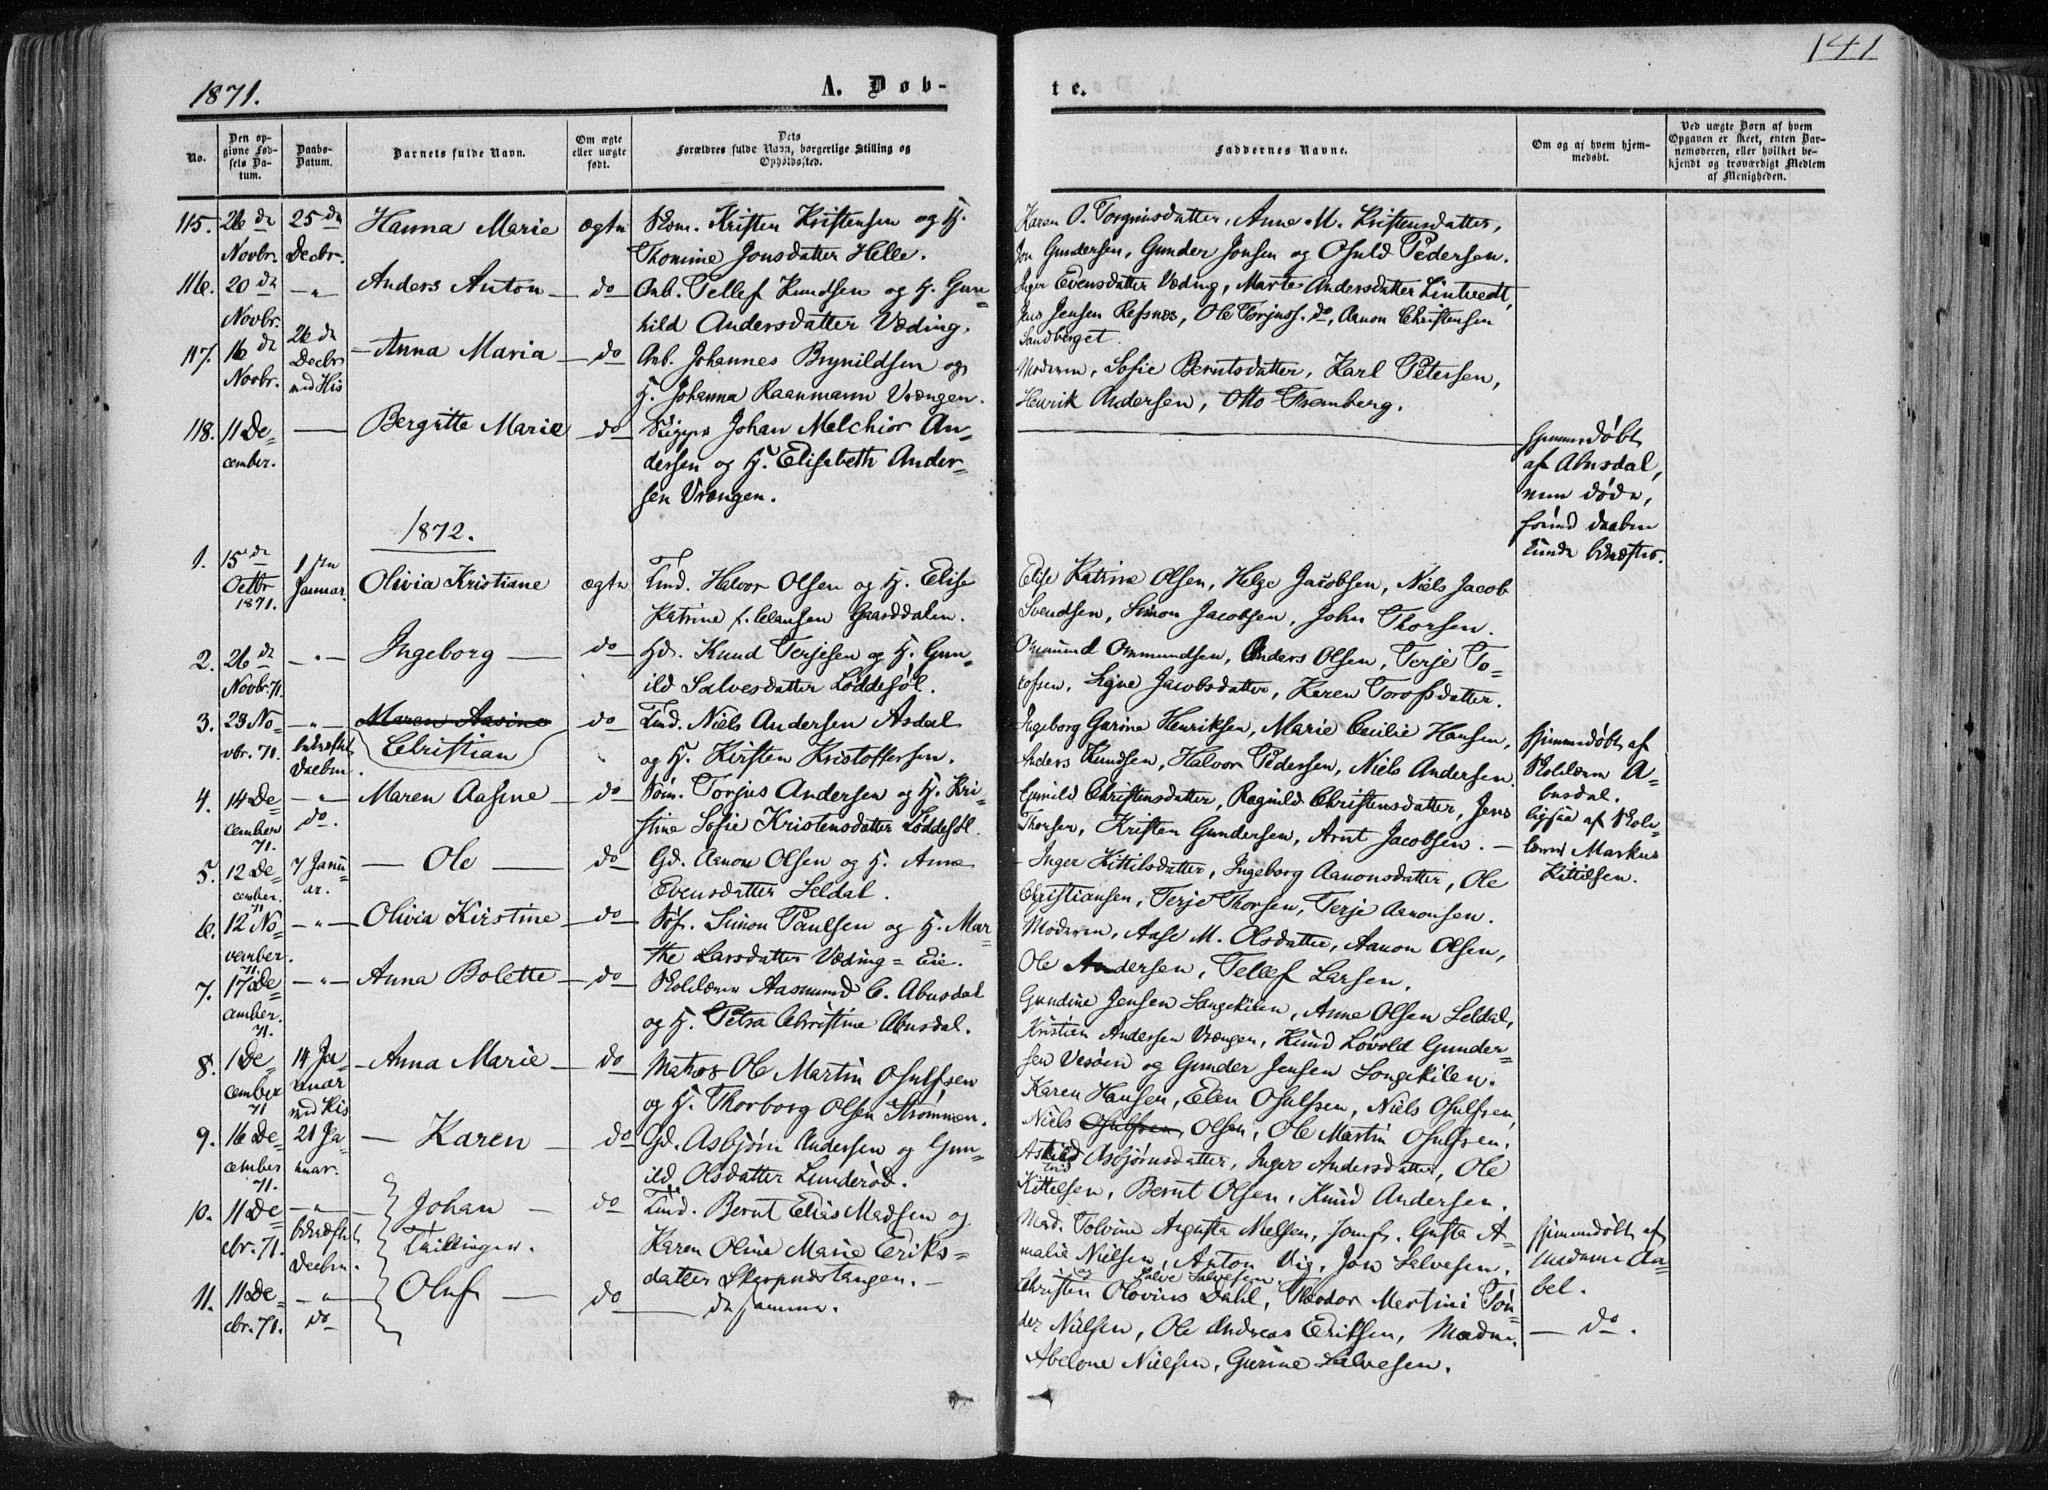 1871.
A. Døb-
te.
141
No.
Den op-
givne Fød-
sels Da-
tum.
Daabs-
Datum.
Barnets fulde Navn.
Om ægte
eller uægte
født.
Dets
Forældres fulde Navn, borgerlige Stilling og
Opholdssted.
Faddernes Navne.
Om og af hvem hjem-
medøbt.
Ved uægte Børn af hvem
Opgaven er skeet, enten Bar-
nemoderen, eller hvilket be-
kjendt og troværdigt Medlem
af Menigheden.
115. 26de Novbr. 25de Decbr. Hanna Marie ægte
Kristen Kristensen og H.
Thomine Jonsdatter Helle.
Karen O. Torgrimsdatter, Anne M. Kristensdatter,
Jon Gundersen, Gunder Jonsen og Osuld Pedersen.
116. 20de Novbr. -"- Anders Anton do
Arb. Tellef Knudsen og H. Gun-
hild Andersdatter Væding.
Inger Evensdatter Væding, Marte Andersdatter Lintvedt,
Jens Jensen Refsnes, Ole Torjusf. do, Aanon Christensen
Sandberget.
117. 16de Novbr. 26de Decbr. med His Anna Maria do
Arb. Johannes Brynildsen og
H. Johanna Raanmann Vrængen.
Moderen, Sofie Berntsdatter, Karl Petersen,
Henrik Andersen, Otto Tremberg.
118. 11 De-
cember. Bergitte Marie do
Johan Melchior An-
dersen og H. Elisabeth Ander-
sen Vrængen.
Hjemmedøbt
af Abusdal,
men døde,
førend Daaben
kunde bekræftes.
1872.
1. 15de Octbr 1871. 1ste Januar. Olivia Kristiane ægte
Tind. Halvor Olsen og H. Elise
Katrine f. Clausen Gaarddalen.
Elise Katrine Olsen, Helge Jacobsen, Niels Jacob
Svendsen, Simon Jacobsen, John Thorsen.
2. 26de Novbr. 71. -"- Ingeborg do
Gd. Knud Terjesen og H. Gun-
ild Salvesdatter Løddesøl.
Omund Ommundsen, Anders Olsen, Terje To-
rofsen, Signe Jacobsdatter, Karen Torofsdatter.
3. 23 No-
vbr. 71. -"- bekræftet Daaben. Maren Aasine
Christian do
Tind. Niels Andersen Asdal
og H. Kirsten Kristoffersen.
Ingeborg Gurine Henriksen, Marie Cecilie Hansen,
Anders Knudsen, Halvor Pedersen, Niels Andersen.
Hjemmedøbt af
Skolelærer A-
busdal.
4. 14 De-
cember 71. -"- do. Maren Aasine do
Søm. Torjus Andersen og H. Kri-
stine Sofie Kristensdatter Løddesøl.
Gunild Christensdatter, Ragnild Christensdatter, Jens
Thorsen, Kristen Gundersen, Arnt Jacobsen.
ligesaa af Skole-
lærer Markus
Kittilsen.
5. 12 De-
cember. 71 7 Janu-
ar. Ole do
Gd. Aanon Olsen og H. Anne
Evensdatter Seldal.
Inger Kittilsdatter, Ingeborg Aanonsdatter, Ole
Christiansen, Terje Thorsen, Terje Aanonsen.
6. 12 No-
vember. 71. -"- Olivia Kirstine do
Søf. Simon Paulsen og H. Mar-
the Larsdatter Væding-Eie.
Moderen, Aase M. Olsdatter, Aanon Olsen,
Ole Andersen, Tellef Larsen.
7. 17 De-
cember. 71. -"- Anna Bolette do
Skolelærer Aasmund C. Abusdal
og H. Petra Christine Abusdal.
Gundine Jensen Langekilen, Anne Olsen Seldal,
Kristen Andersen Vrængen, Knud Lovold Gunder-
sen Vesøen og Gunder Jensen Longekilen.
8. 1 De-
cember 71 14 Ja-
nuar med His Anna Marie do
Matros Ole Martin Osulfsen
og H. Thorborg Olsen Strømmen.
Karen Hansen, Elen Osulfsen, Niels Osulfsen,
Niels Osulfsen, Olsen, Ole Martin Osulfsen.
9. 16 De-
cember 71. 21 Ja-
nuar. Karen do
Gd. Asbjørn Andersen og Gun-
ild Olsdatter Lunderød.
Askild Asbjørnsdatter, Inger Andersdatter, Ole
Kittelsen, Bernt Olsen, Knud Andersen.
10. 11 De-
cbr. 71. -"- bekræftet Daaben Johan
Tvillinger. do
Tind. Bernt Elias Madsen og
Karen Oline Marie Eriks-
datter Skarpnestangen.
Mad. Tolvine Augusta Nielsen, Jomf. Gusta A-
malie Nielsen, Anton Vig, Jon Salvesen.
og Salve Salvesen.
Hjemmedøbt af
Madame Aa-
bel.
11. 11 De-
cbr. 71. -"- do Oluf do
de samme.
Christen Olovius Dahl, Theodor Martini Tøn-
der Nielsen, Ole Andreas Eriksen, Madm.
Abelone Nielsen, Gurine Salvesen.
do.